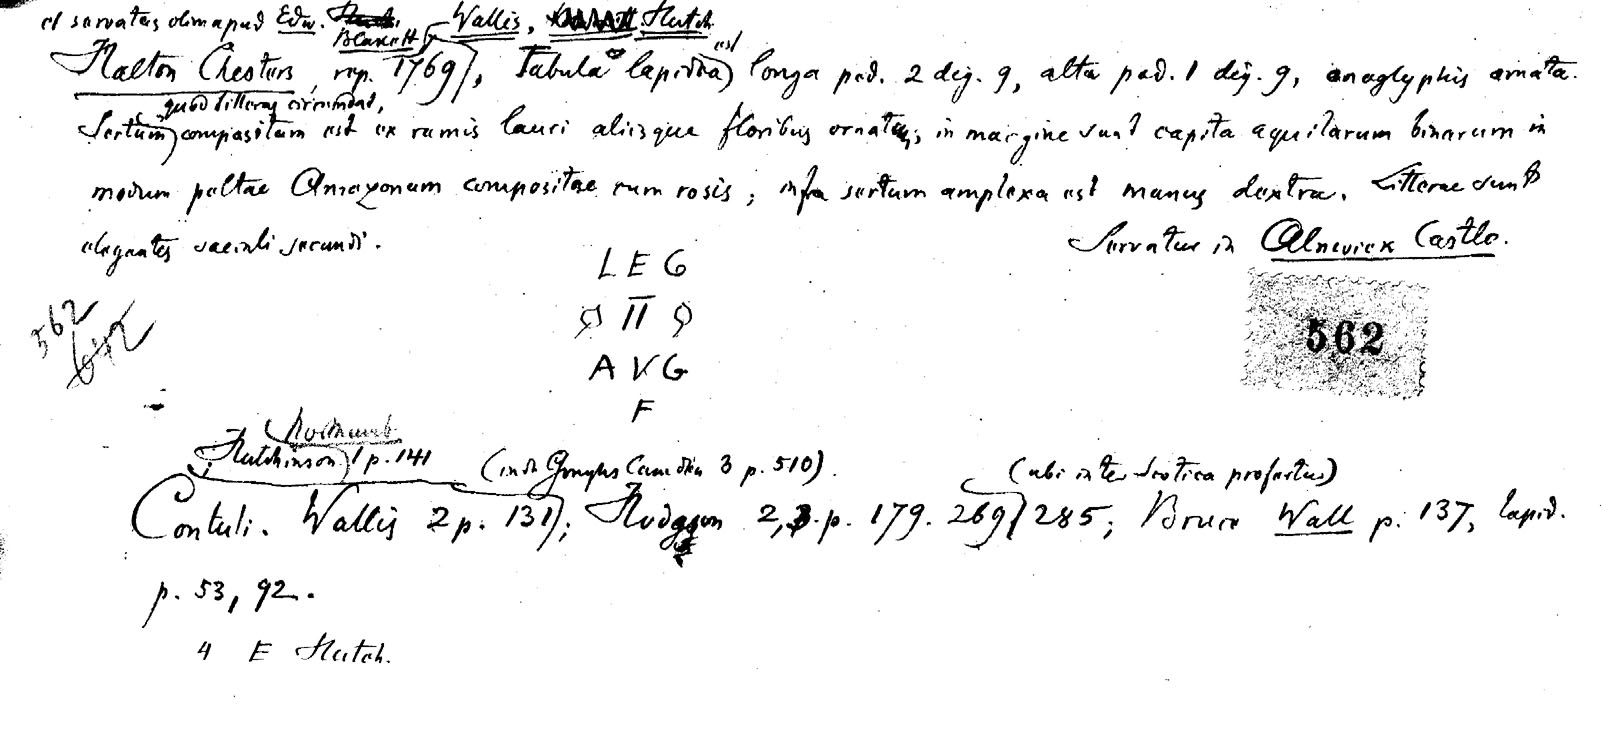 et servatus olim apud Edw. Blackett Wallis, Hutch.
Halton Chesters, rep. 1769, Tabula lapidea est longa ped. 2 dig. 9, alta ped. 1 dig. 9, anaglyphis ornata.
quod litteras circumdat,
Sertum compositum est ex ramis lauri aliisque floribus ornatus, in margine sunt capita aquilarum binarum in
modum peltae Amazonum compositae cum rosis; infra sertum amplexa est manus dextra. Litterae sunt
elegantes saeculi secundi.
Servatur in Alnwick Castle.
L E G
II
A V G
F
562
642
562
Northumb
Hutchinson 1 p. 141 (inde Goughs Camden 3 p. 510). (ubi inter Scotica profertur)
Contuli. Wallis 2 p. 131; Hodgson 2, 3 p. 179. 269 285; Bruce Wall p. 137, lapid.
p. 53, 92.
4 E Hutch.